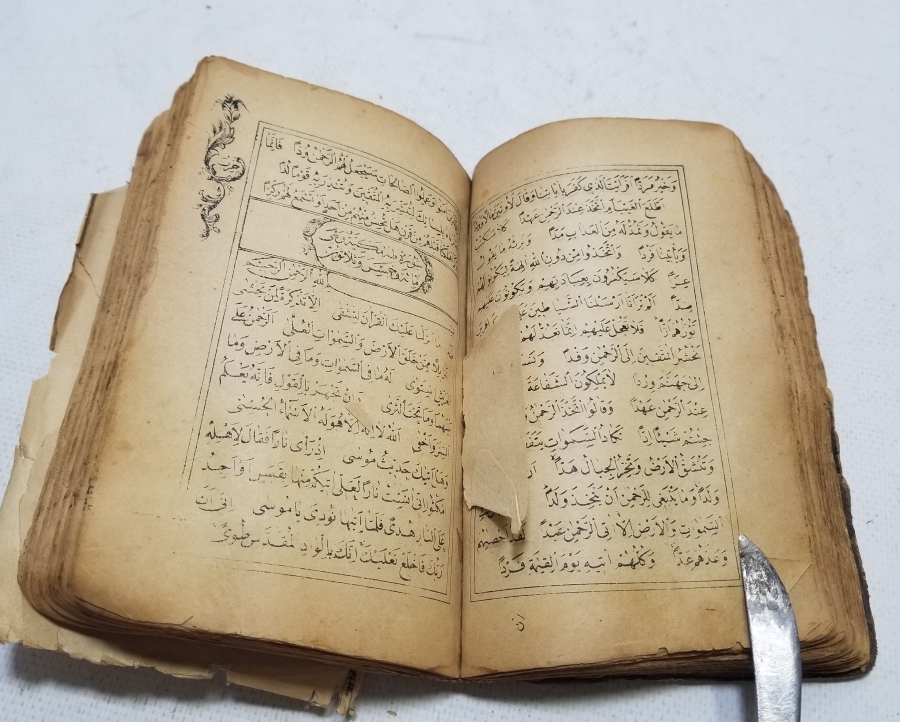 وَخَيْرٌ مَرَدًّا اَفَرَاَيْتَ الَّذِي كَفَرَ بِاٰيَاتِنَا وَقَالَ لَاُوتَيَنَّ مَالًا وَوَلَدًا
اَطَّلَعَ الْغَيْبَ اَمِ اتَّخَذَ عِنْدَ الرَّحْمٰنِ عَهْدًا كَلَّا سَنَكْتُبُ
مَا يَقُولُ وَنَمُدُّ لَهُ مِنَ الْعَذَابِ مَدًّا وَنَرِثُهُ مَا يَقُولُ
وَيَأْتِينَا فَرْدًا وَاتَّخَذُوا مِنْ دُونِ اللهِ اٰلِهَةً لِيَكُونُوا لَهُمْ
عِزًّا كَلَّا سَيَكْفُرُونَ بِعِبَادَتِهِمْ وَيَكُونُونَ عَلَيْهِمْ
ضِدًّا اَلَمْ تَرَ اَنَّا اَرْسَلْنَا الشَّيَاطِينَ عَلَى
تَؤُزُّهُمْ اَزًّا فَلَا تَعْجَلْ عَلَيْهِمْ اِنَّمَا نَعُدُّ لَهُمْ
نَحْشُرُ الْمُتَّقِينَ اِلَى الرَّحْمٰنِ وَفْدًا
اِلٰى جَهَنَّمَ وِرْدًا لَا يَمْلِكُونَ الشَّفَاعَةَ
عِنْدَ الرَّحْمٰنِ عَهْدًا وَقَالُوا اتَّخَذَ الرَّحْمٰنُ
جِئْتُمْ شَيْئًا اِدًّا تَكَادُ السَّمٰوَاتُ
وَتَنْشَقُّ الْاَرْضُ وَتَخِرُّ الْجِبَالُ هَدًّا
وَلَدًا وَمَا يَنْبَغِي لِلرَّحْمٰنِ اَنْ يَتَّخِذَ وَلَدًا
السَّمٰوَاتِ وَالْاَرْضِ اِلَّا اٰتِي الرَّحْمٰنِ عَبْدًا لَقَدْ اَحْصٰيهُمْ
وَعَدَّهُمْ عَدًّا وَكُلُّهُمْ اٰتِيهِ يَوْمَ الْقِيٰمَةِ فَرْدًا
اِنَّ
اٰمَنُوا وَعَمِلُوا الصَّالِحَاتِ سَيَجْعَلُ لَهُمُ الرَّحْمٰنُ وُدًّا فَاِنَّمَا
بِلِسَانِكَ لِتُبَشِّرَ بِهِ الْمُتَّقِينَ وَتُنْذِرَ بِهِ قَوْمًا لُدًّا
اَهْلَكْنَا قَبْلَهُمْ مِنْ قَرْنٍ هَلْ تُحِسُّ مِنْهُمْ مِنْ اَحَدٍ اَوْ تَسْمَعُ لَهُمْ رِكْزًا
حزب
سورة طه مكية وهي
مائة وخمس وثلاثون
اللهِ الرَّحْمٰنِ الرَّحِيمِ
طٰهٰ مَا اَنْزَلْنَا عَلَيْكَ الْقُرْاٰنَ لِتَشْقٰى اِلَّا تَذْكِرَةً لِمَنْ يَخْشٰى
تَنْزِيلًا مِمَّنْ خَلَقَ الْاَرْضَ وَالسَّمٰوَاتِ الْعُلٰى اَلرَّحْمٰنُ عَلَى
الْعَرْشِ اسْتَوٰى لَهُ مَا فِي السَّمٰوَاتِ وَمَا فِي الْاَرْضِ وَمَا
بَيْنَهُمَا وَمَا تَحْتَ الثَّرٰى وَاِنْ تَجْهَرْ بِالْقَوْلِ فَاِنَّهُ يَعْلَمُ
السِّرَّ وَاَخْفٰى اَللهُ لَا اِلٰهَ اِلَّا هُوَ لَهُ الْاَسْمَاءُ الْحُسْنٰى
وَهَلْ اَتٰيكَ حَدِيثُ مُوسٰى اِذْ رَاٰى نَارًا فَقَالَ لِاَهْلِهِ
امْكُثُوا اِنِّي اٰنَسْتُ نَارًا لَعَلِّي اٰتِيكُمْ مِنْهَا بِقَبَسٍ اَوْ اَجِدُ
عَلَى النَّارِ هُدًى فَلَمَّا اَتٰيهَا نُودِيَ يَا مُوسٰى اِنِّي اَنَا
رَبُّكَ فَاخْلَعْ نَعْلَيْكَ اِنَّكَ بِالْوَادِ الْمُقَدَّسِ طُوًى